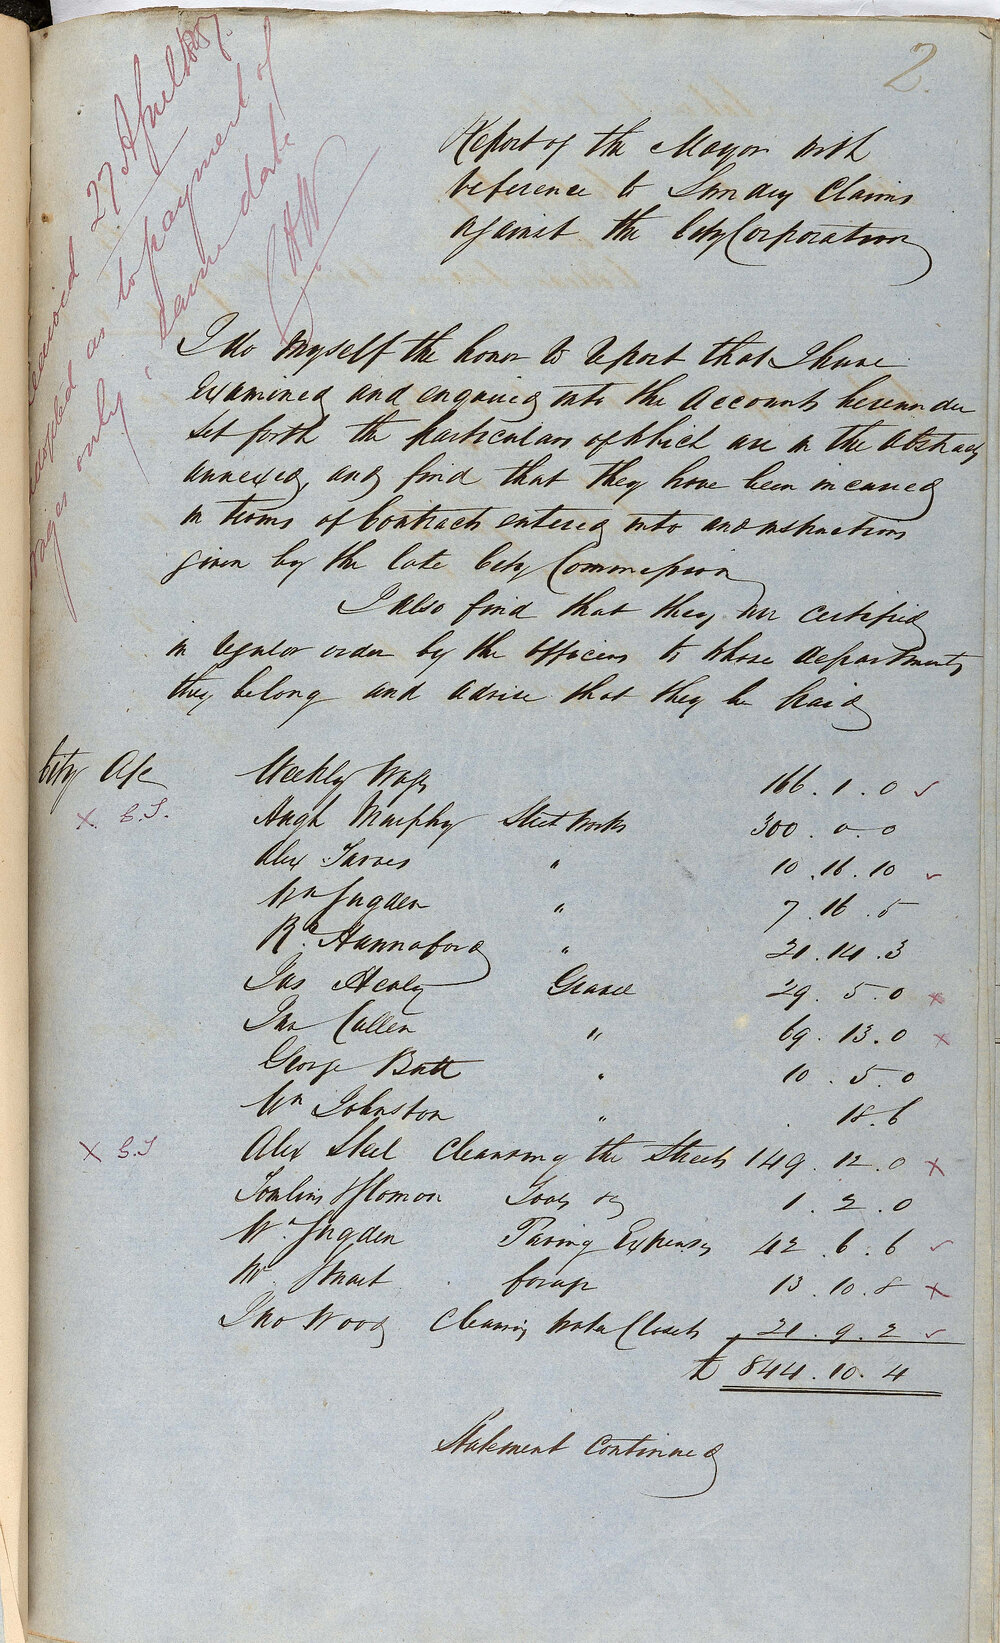 2.
27 April 1857.
Received
adopted as to payment of
wages only
same date
Report of the Mayor with
reference to Sundry Claims
against the City Corporation
I do myself the honor to report that I have
examined and enquired into the Accounts hereunder
set forth the particulars of which are in the Abstract
annexed, and find that they have been incurred
in terms of Contracts entered into and instructions
given by the late City Commission
I also find that they are certified
in regular order by the officers to whose departments
they belong and advise that they be paid
City A/c Weekly Wages 166 . 1 . 0 ✓
X. C.T. Hugh Murphy Street Works 300 . 0 . 0
Alex Jarves " 10 . 16 . 10 ✓
Wm Sugden " 7 . 16 . 5
Rd. Hannaford " 21 . 14 . 3
Jas Healy Gravel 29 . 5 . 0 x
Jas Cullen " 69 . 13 . 0 x
George Butt " 10 . 5 . 0
Wm Johnston " . 18 . 6
X C.T Alex Steel Cleansing the Streets 149 . 12 . 0 x
Tools &c 1 . 2 . 0
Wm. Sugden Paving Expenses 42 . 6 . 6 ✓
W. Stuart forage 13 . 10 . 8 x
Jno Wood Cleansing Water Closets 21 . 9 . 2 ✓
£ 844 . 10 . 4
Statement Continued